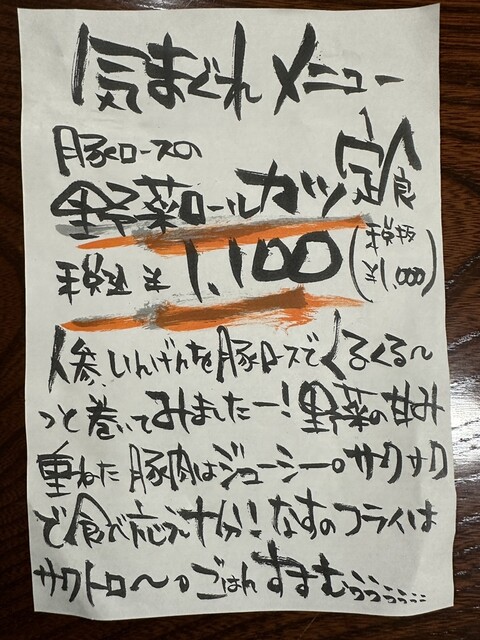 気まぐれメニュー
豚ロースの
野菜ロールカツ定食
税込¥1,100(税抜¥1,000)
人参、いんげんを豚ロースでくるくる〜
っと巻いてみましたー!野菜の甘み
重ねた豚肉はジューシー。サクサク
で食べ応え十分!なすのフライは
サクトロ〜。ごはんすすむぅぅぅぅ……